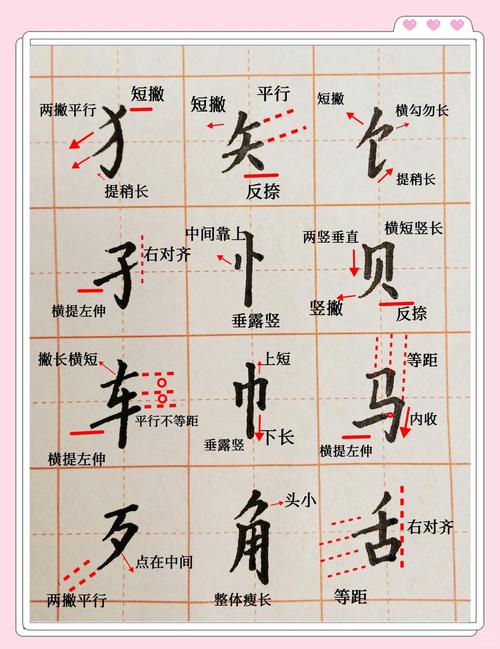 两撇平行
短撇
犭
提稍长
短撇
平行
矢
反捺
短撇
横勾勿长
饣
提稍长
右对齐
孑
横提左伸
中间靠上
忄
垂露竖
两竖垂直
横短竖长
贝
竖撇
反捺
撇长横短
车
平行不等距
横提左伸
上短
巾
垂露竖
下长
等距
马
内收
横提左伸
歹
点在中间
两撇平行
头小
角
整体瘦长
右对齐
舌
等距